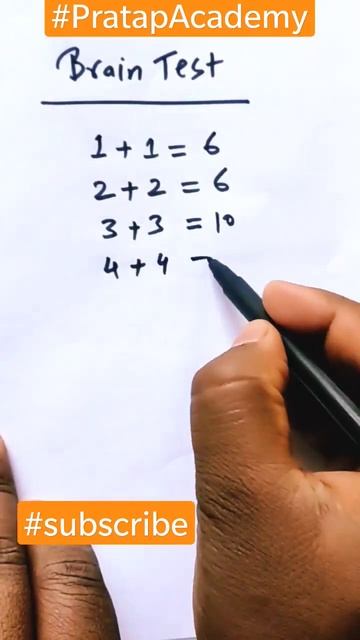 #PratapAcademy
Brain Test
1 + 1 = 6
2 + 2 = 6
3 + 3 = 10
4 + 4 -
#subscribe